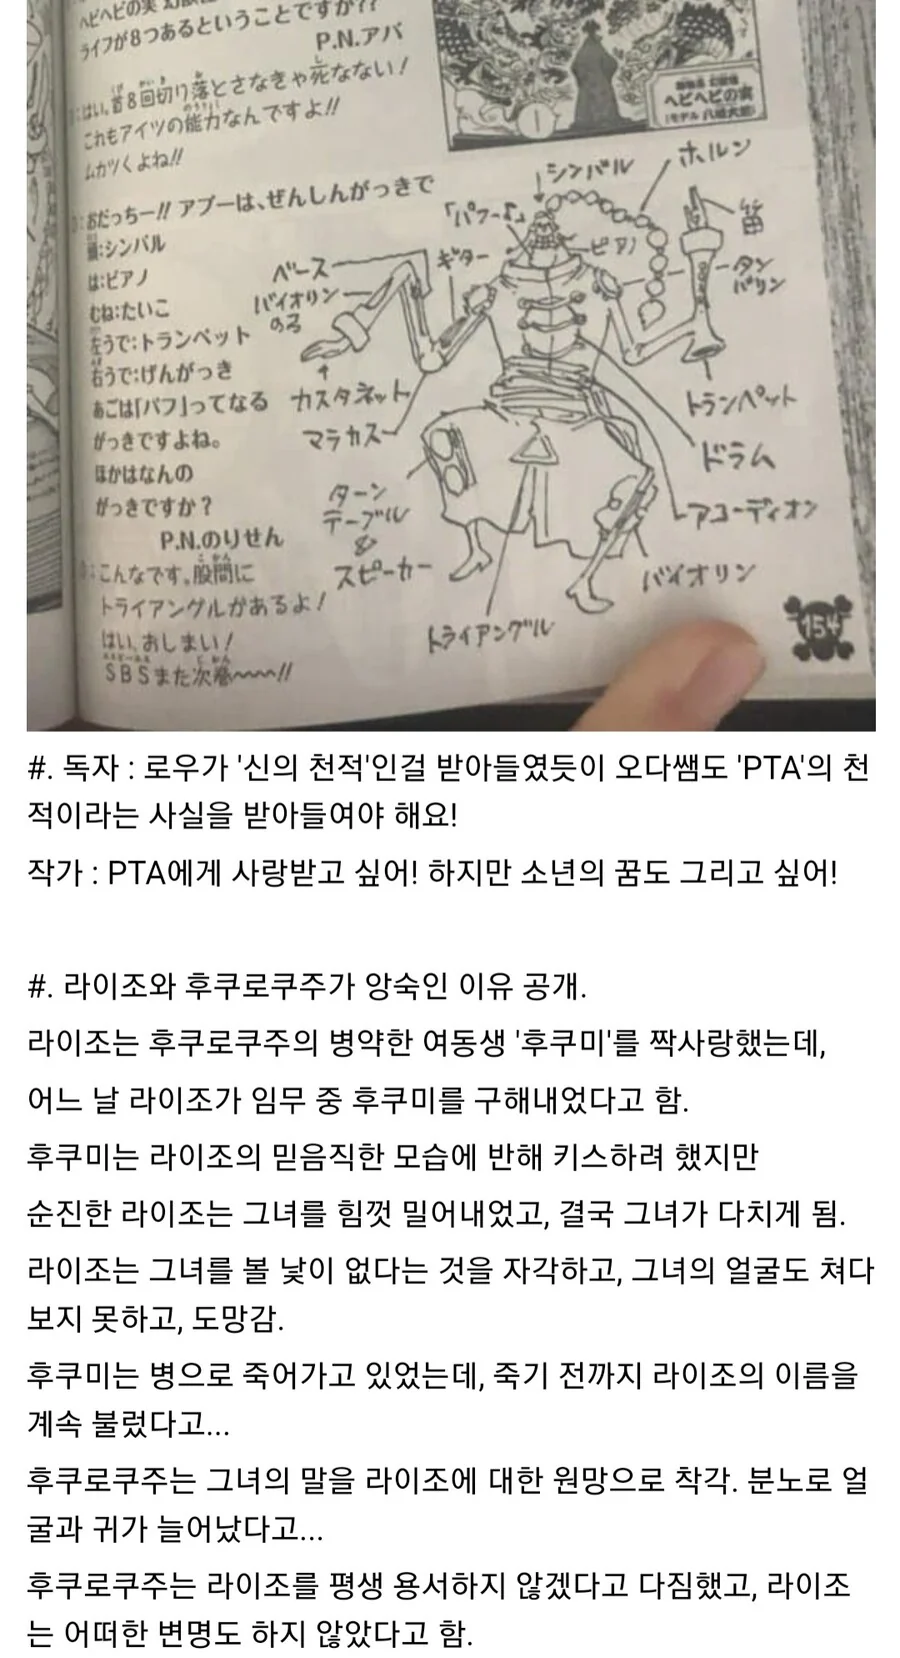 ライフが8つあるということですか??
P.N.アバ
はい。首8回切り落とさなきゃ死なない!
これもアイツの能力なんですよ!!
ムカツくよね!!
ヘビヘビの実
おだっちー!! アプーは、ぜんしんがっきで
頭:シンバル
は:ピアノ
むね:たいこ
左うで:トランペット
右うで:げんがっき
あごは「パフ」ってなる
がっきですよね。
ほかはなんの
がっきですか?
P.N.のりせん
こんなです。股間に
トライアングルがあるよ!
はい、おしまい!
SBSまた次巻〜〜〜!!
シンバル
ホルン
「パフー♪」
笛
ピアノ
ギター
ベース
タン
バリン
バイオリン
のる
カスタネット
マラカス
トランペット
ドラム
ターン
テーブル
&
スピーカー
アコーディオン
バイオリン
トライアングル
154
#. 독자 : 로우가 '신의 천적'인걸 받아들였듯이 오다쌤도 'PTA'의 천
적이라는 사실을 받아들여야 해요!
작가 : PTA에게 사랑받고 싶어! 하지만 소년의 꿈도 그리고 싶어!
#. 라이조와 후쿠로쿠주가 앙숙인 이유 공개.
라이조는 후쿠로쿠주의 병약한 여동생 '후쿠미'를 짝사랑했는데,
어느 날 라이조가 임무 중 후쿠미를 구해내었다고 함.
후쿠미는 라이조의 믿음직한 모습에 반해 키스하려 했지만
순진한 라이조는 그녀를 힘껏 밀어내었고, 결국 그녀가 다치게 됨.
라이조는 그녀를 볼 낯이 없다는 것을 자각하고, 그녀의 얼굴도 쳐다
보지 못하고, 도망감.
후쿠미는 병으로 죽어가고 있었는데, 죽기 전까지 라이조의 이름을
계속 불렀다고...
후쿠로쿠주는 그녀의 말을 라이조에 대한 원망으로 착각. 분노로 얼
굴과 귀가 늘어났다고...
후쿠로쿠주는 라이조를 평생 용서하지 않겠다고 다짐했고, 라이조
는 어떠한 변명도 하지 않았다고 함.